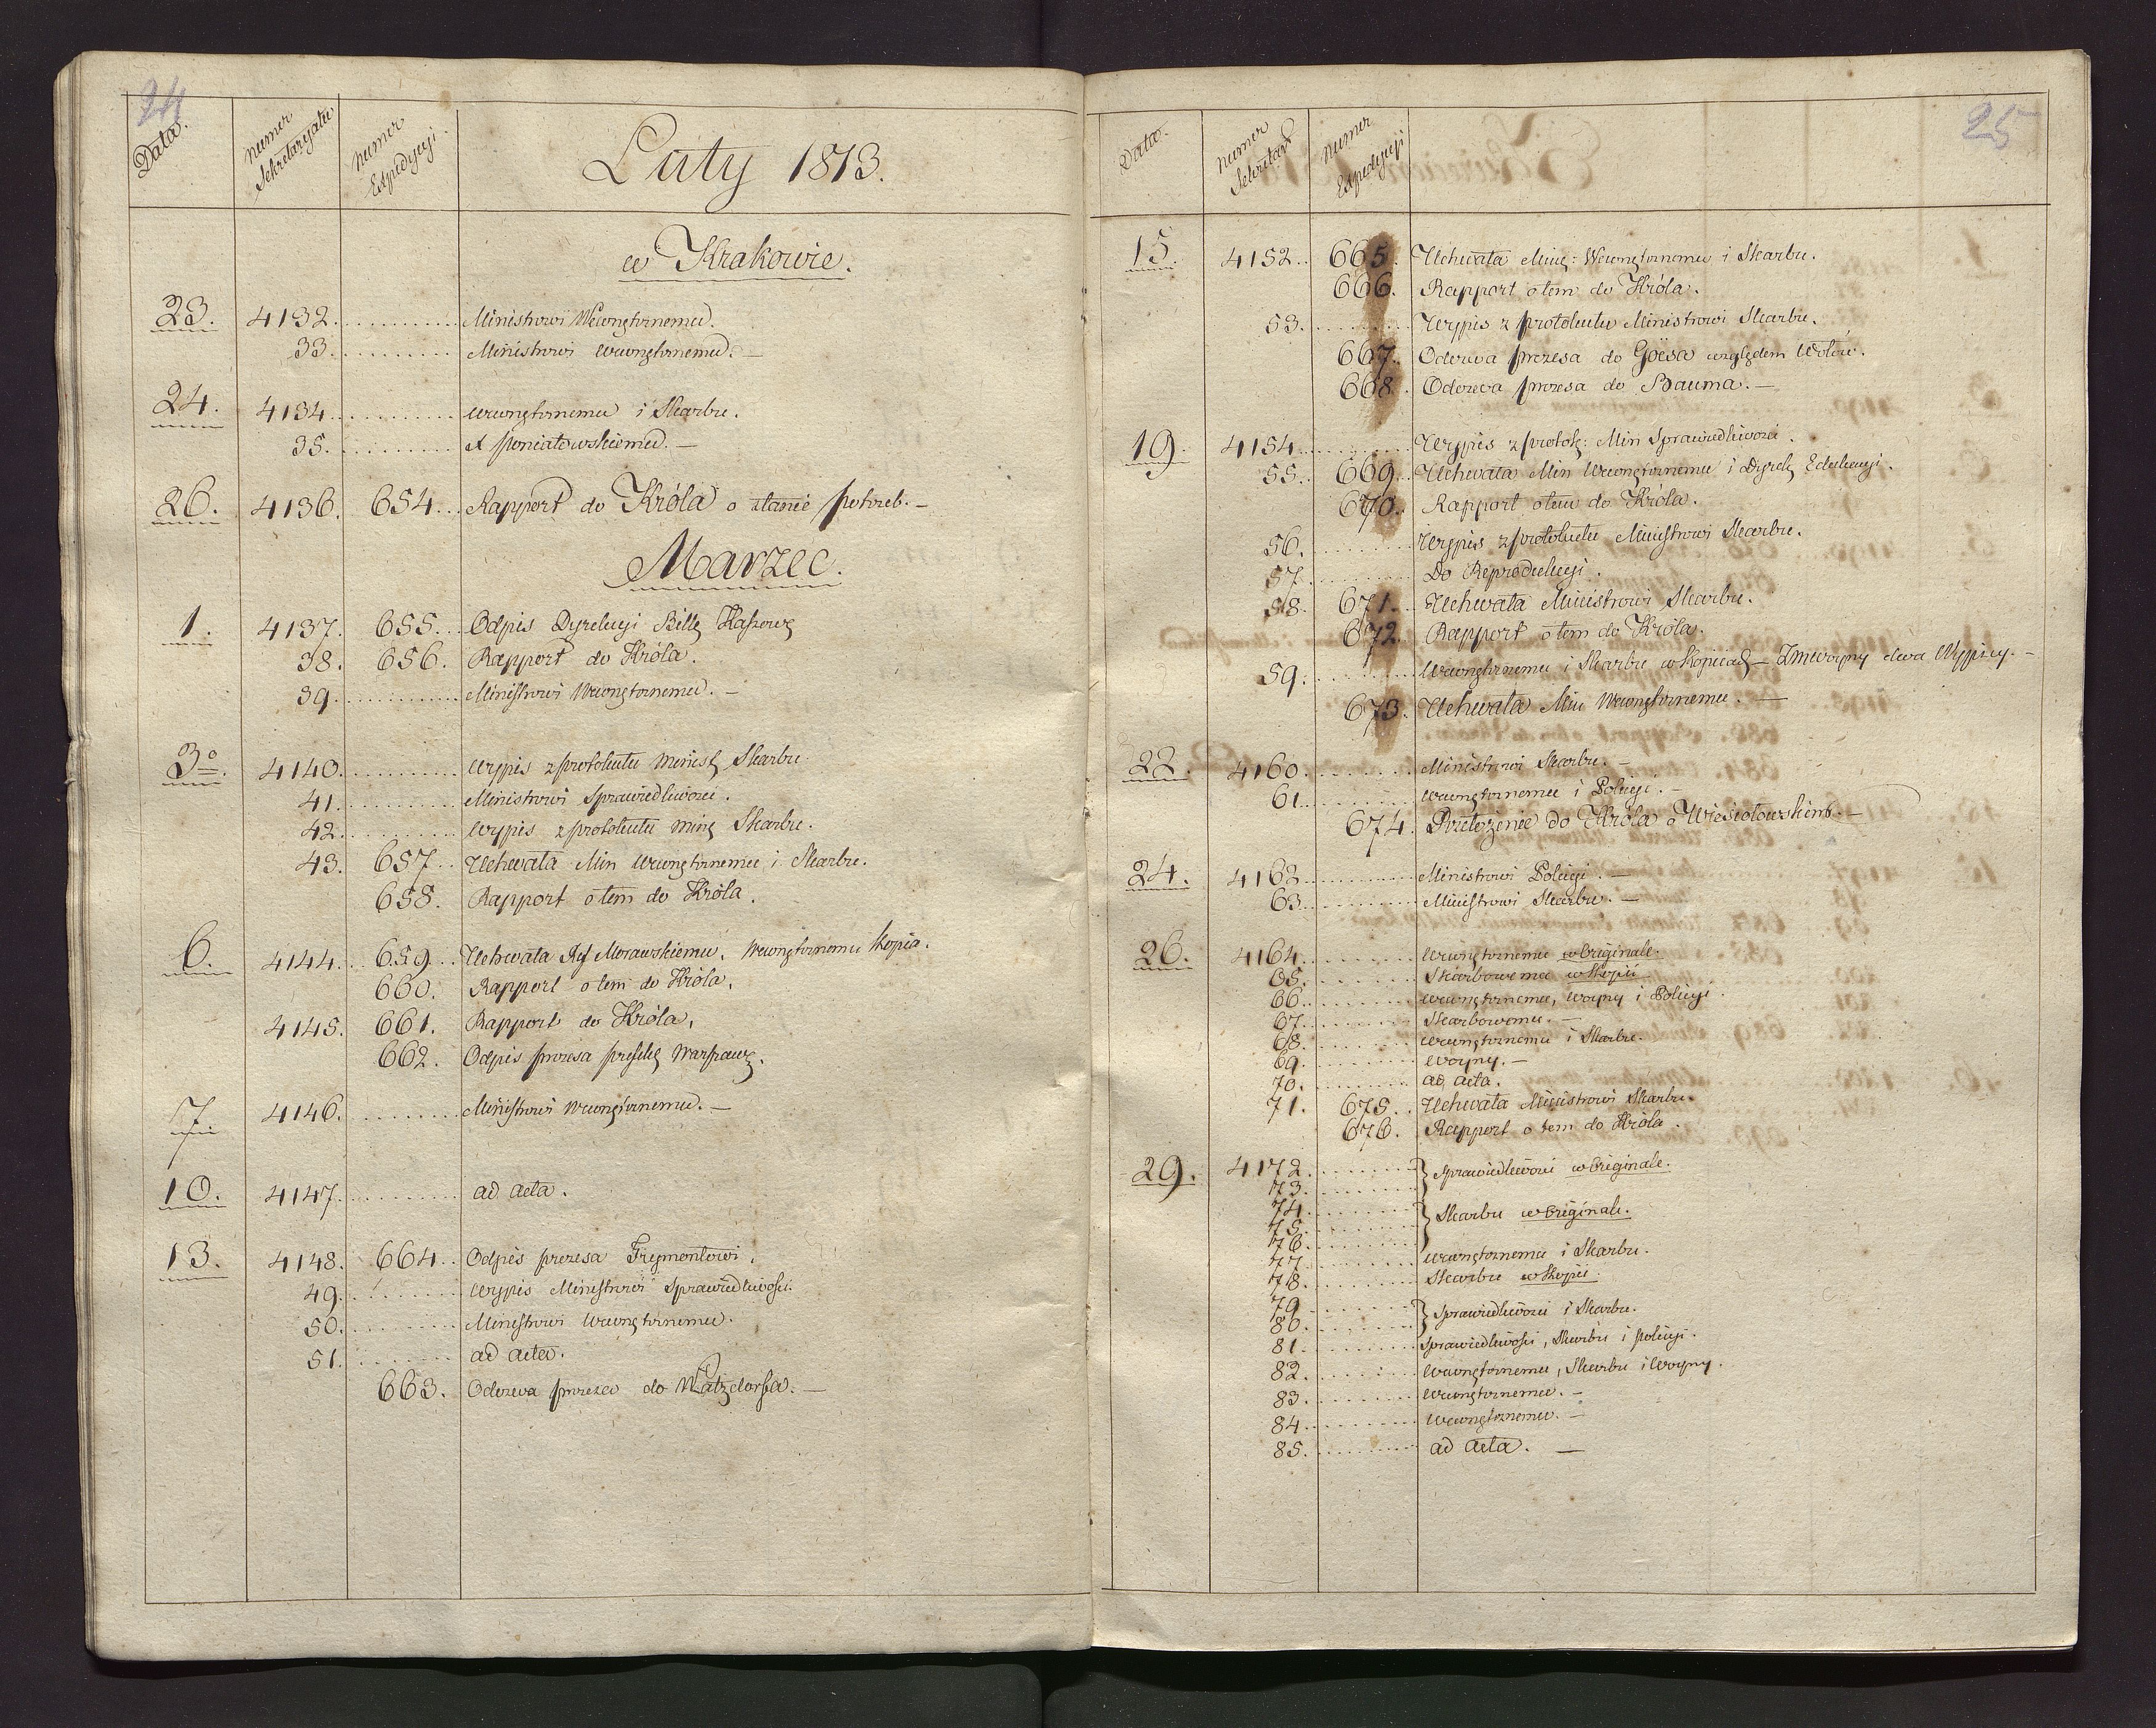 24
Data. Numer Sekretaryatu Numer Expedycyi Luty 1813.
w Krakowie.
23. 4132. Ministrowi Wewnętrznemu.
33. Ministrowi Wewnętrznemu. —
24. 4134. Wewnętrznemu i Skarbu.
35. X Poniatowskiemu. —
26. 4136. 654. Rapport do Króla o stanie potrzeb. —
Marzec.
1. 4137. 655. Odpis Dyrekcyi Bille Kassowe
38. 656. Rapport do Króla.
39. Ministrowi Wewnętrznemu. —
3o. 4140. Wypis z protokułu Minist Skarbu
41. Ministrowi Sprawiedliwości.
42. Wypis z protokułu Min Skarbu.
43. 657. Uchwała Min Wewnętrznemu i Skarbu.
658. Rapport o tem do Króla.
6. 4144. 659. Uchwała Morawskiemu. Wewnętrznemu Kopia.
660. Rapport o tem do Króla.
4145. 661. Rapport do Króla.
662. Odpis prezesa Warszaws.
7. 4146. Ministrowi Wewnętrznemu. —
10. 4147. ad acta.
13. 4148. 664. Odpis prezesa Frymontowi.
49. Wypis Ministrowi Sprawiedliwości.
50. Ministrowi Wewnętrznemu.
51. ad acta.
663. Odezwa prezesa do Watzdorfa. —
25
Data. Numer Sekretar Numer Expedycyi
15. 4152. 665. Uchwała Min: Wewnętrznemu i Skarbu.
666. Rapport o tem do Króla.
53. Wypis z protokułu Ministrowi Skarbu.
667. Odezwa prezesa do Goësa względem Wołów.
668. Odezwa prezesa do Bauma. —
19. 4154. Wypis z protok: Min Sprawiedliwości.
55. 669. Uchwała Min Wewnętrznemu i Dyrek Edukacyi.
670. Rapport o tem do Króla.
56. Wypis z protokułu Ministrowi Skarbu.
57. Do Reprodukcyi.
58. 671. Uchwała Ministrowi Skarbu.
672. Rapport o tem do Króla.
59. Wewnętrznemu i Skarbu w Kopiach — Woyny dwa Wypisy. —
673. Uchwała Min Wewnętrznemu. —
22. 4160. Ministrowi Skarbu. —
61. Wewnętrznemu i Policyi. —
674. Przełożenie do Króla o Wiesiołowskim. —
24. 4162. Ministrowi Policyi. —
63. Ministrowi Skarbu. —
26. 4164. Wewnętrznemu w Originale.
65. Skarbowemu w Kopii
66. Wewnętrznemu, Woyny i Policyi.
67. Skarbowemu. —
68. Wewnętrznemu i Skarbu.
69. Woyny. —
70. ad acta.
71. 675. Uchwała Ministrowi Skarbu.
676. Rapport o tem do Króla.
29. 4172. } Sprawiedliwości w Originale.
73.
74. } Skarbu w Originale.
75.
76.
77. Wewnętrznemu i Skarbu.
78. Skarbu w Kopii.
79. } Sprawiedliwości i Skarbu.
80.
81. Sprawiedliwości, Skarbu i Policyi.
82. Wewnętrznemu, Skarbu i Woyny.
83. Wewnętrznemu. —
84. Wewnętrznemu. —
85. ad acta. —